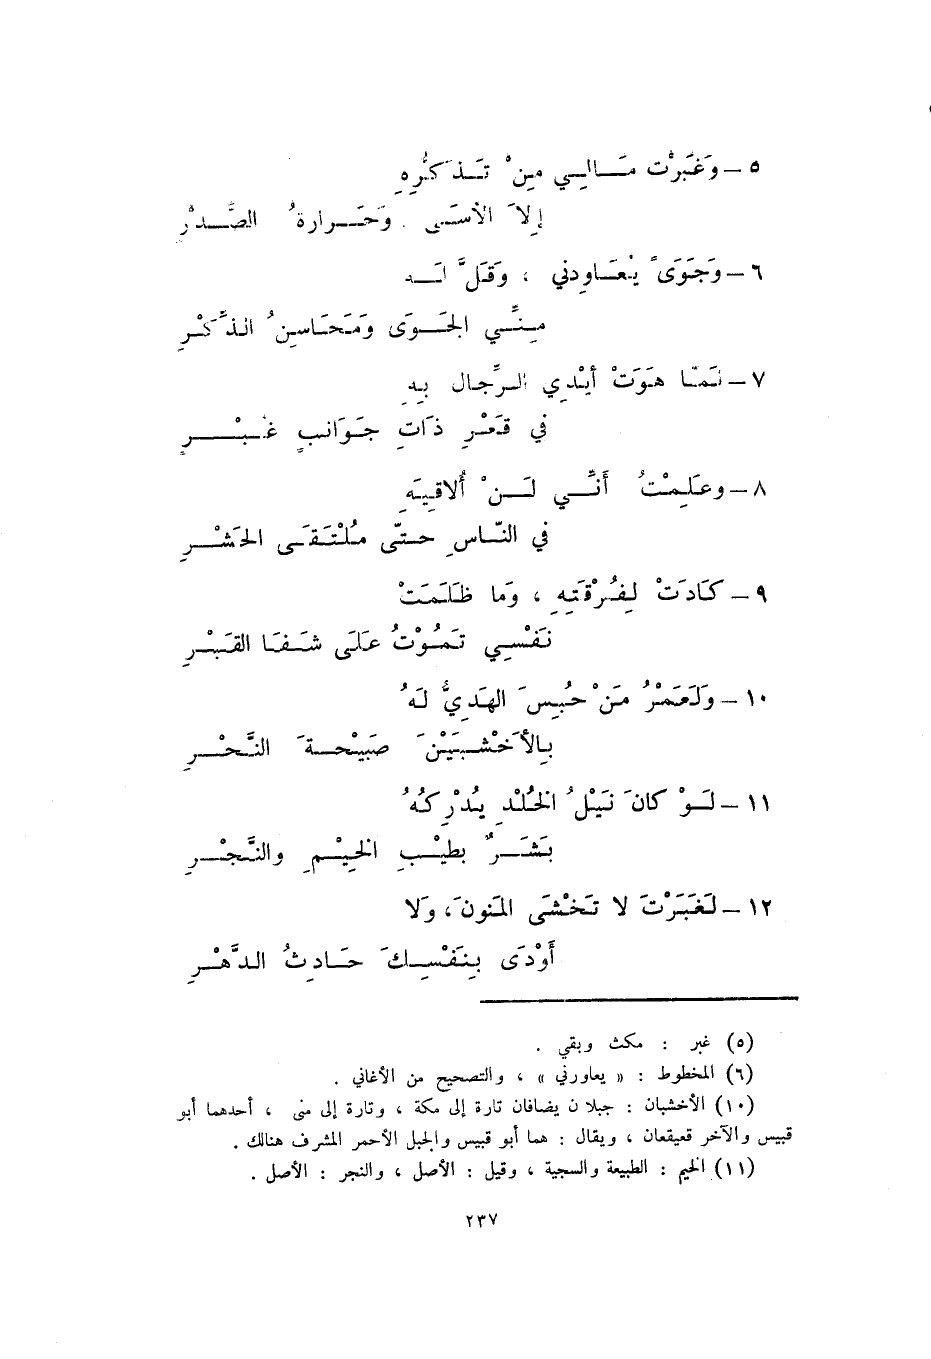 ٥ – وَغَبَرْت مَالِي مِنْ تَذَكُّرِهِ
إِلاَّ الأسَى وَحَرارةُ الصَّدْرِ
٦ – وَجَوَىً يُعَاوِدني ، وَقَلَّ لَه
مِنِّي الجَوَى وَمَحَاسِنُ الذِّكْرِ
٧ – لَمَّا هَوَتْ أيْدِي الرِّجال بِهِ
في قَعْرِ ذَاتِ جَوَانبٍ غُبْرِ
٨ – وعَلِمْتُ أَنِّي لَنْ أُلاقِيَهِ
في النّاسِ حتّى مُلْتَقَى الحَشْرِ
٩ – كَادَتْ لِفُرْقَتِهِ ، وَما ظَلَمَتْ
نَفْسِي تَمُوْتُ عَلَى شَفَا القَبْرِ
١٠ – وَلَعَمْرُ مَنْ حُبِسَ الهَدِيُّ لَهُ
بِالأَخْشَبَيْنَ صَبِيْحةَ النَّحْرِ
١١ – لَوْ كانَ نَيْلُ الخُلْدِ يُدْرِكُهُ
بَشَرٌ بطِيْبِ الخِيْمِ والنَّجْرِ
١٢ – لَغَبَرْتَ لا تَخْشَى المَنونَ، وَلا
أَوْدَى بِنَفْسِكَ حَادِثُ الدَّهْرِ
(٥) غبر : مكث وبقي .
(٦) المخطوط : « يعاورني » ، والتصحيح من الأغاني .
(١٠) الأخشبان : جبلان يضافان تارة إلى مكة ، وتارة إلى منى ، أحدهما أبو
قبيس والآخر قعيقعان ، ويقال : هما أبو قبيس والجبل الأحمر المشرف هنالك .
(١١) الخيم : الطبيعة والسجية ، وقيل : الأصل ، والنجر : الأصل .
٢٣٧